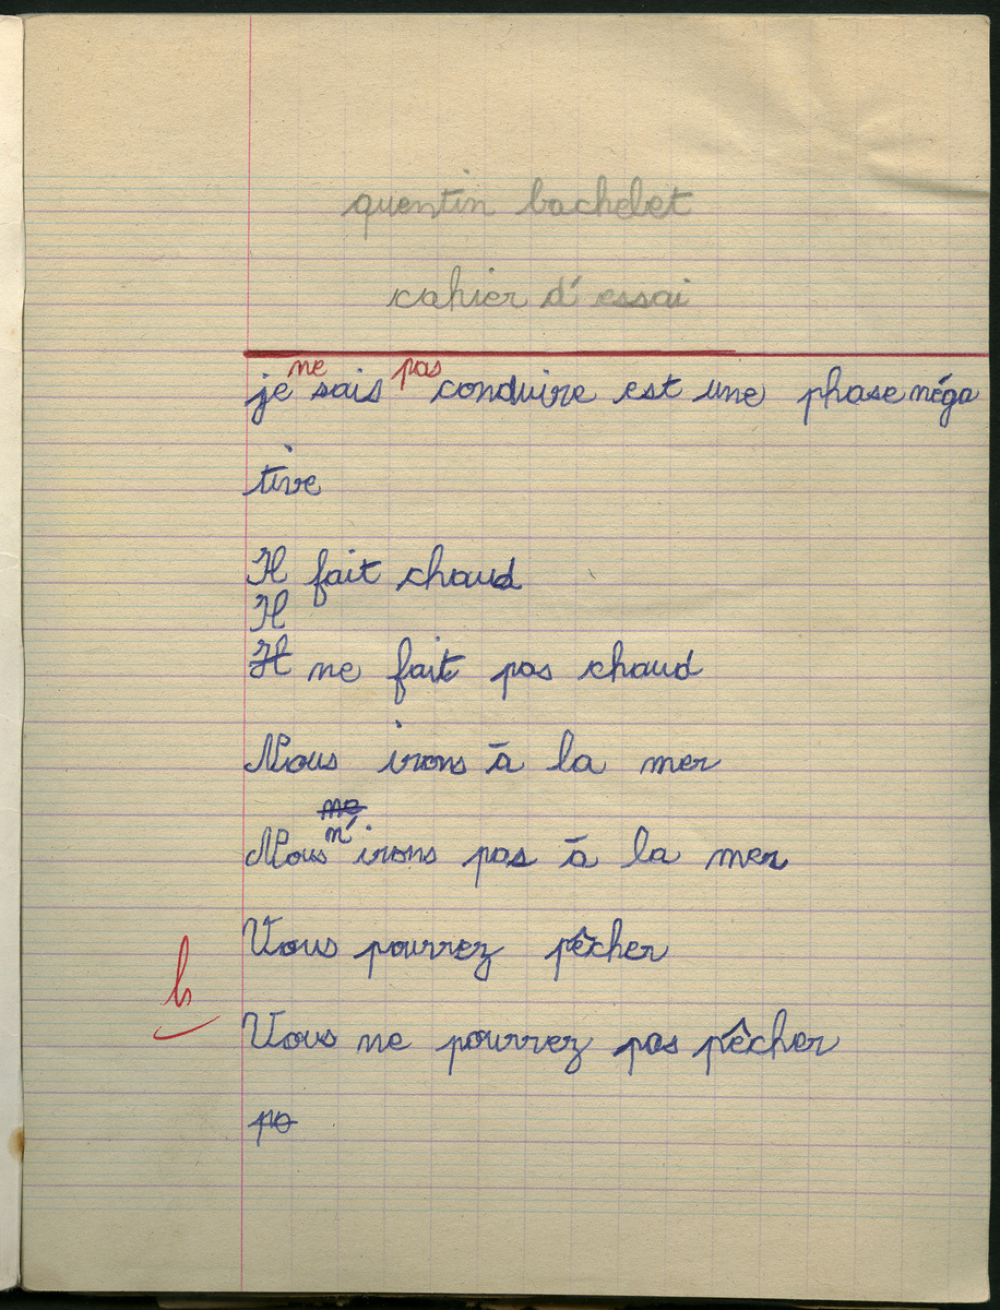 quentin bachelet
cahier d'essai
ne pas
je sais conduire est une phase néga
tive
Il fait chaud
Il
Il ne fait pas chaud
Nous irons à la mer
ne
n'
Nous irons pas à la mer
Vous pourrez pêcher
b
Vous ne pourrez pas pêcher
po